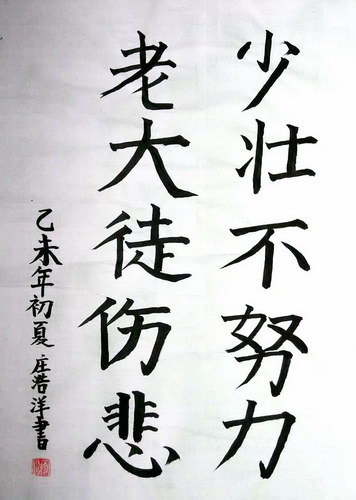 少壮不努力
老大徒伤悲
乙未年初夏 庄浩洋书